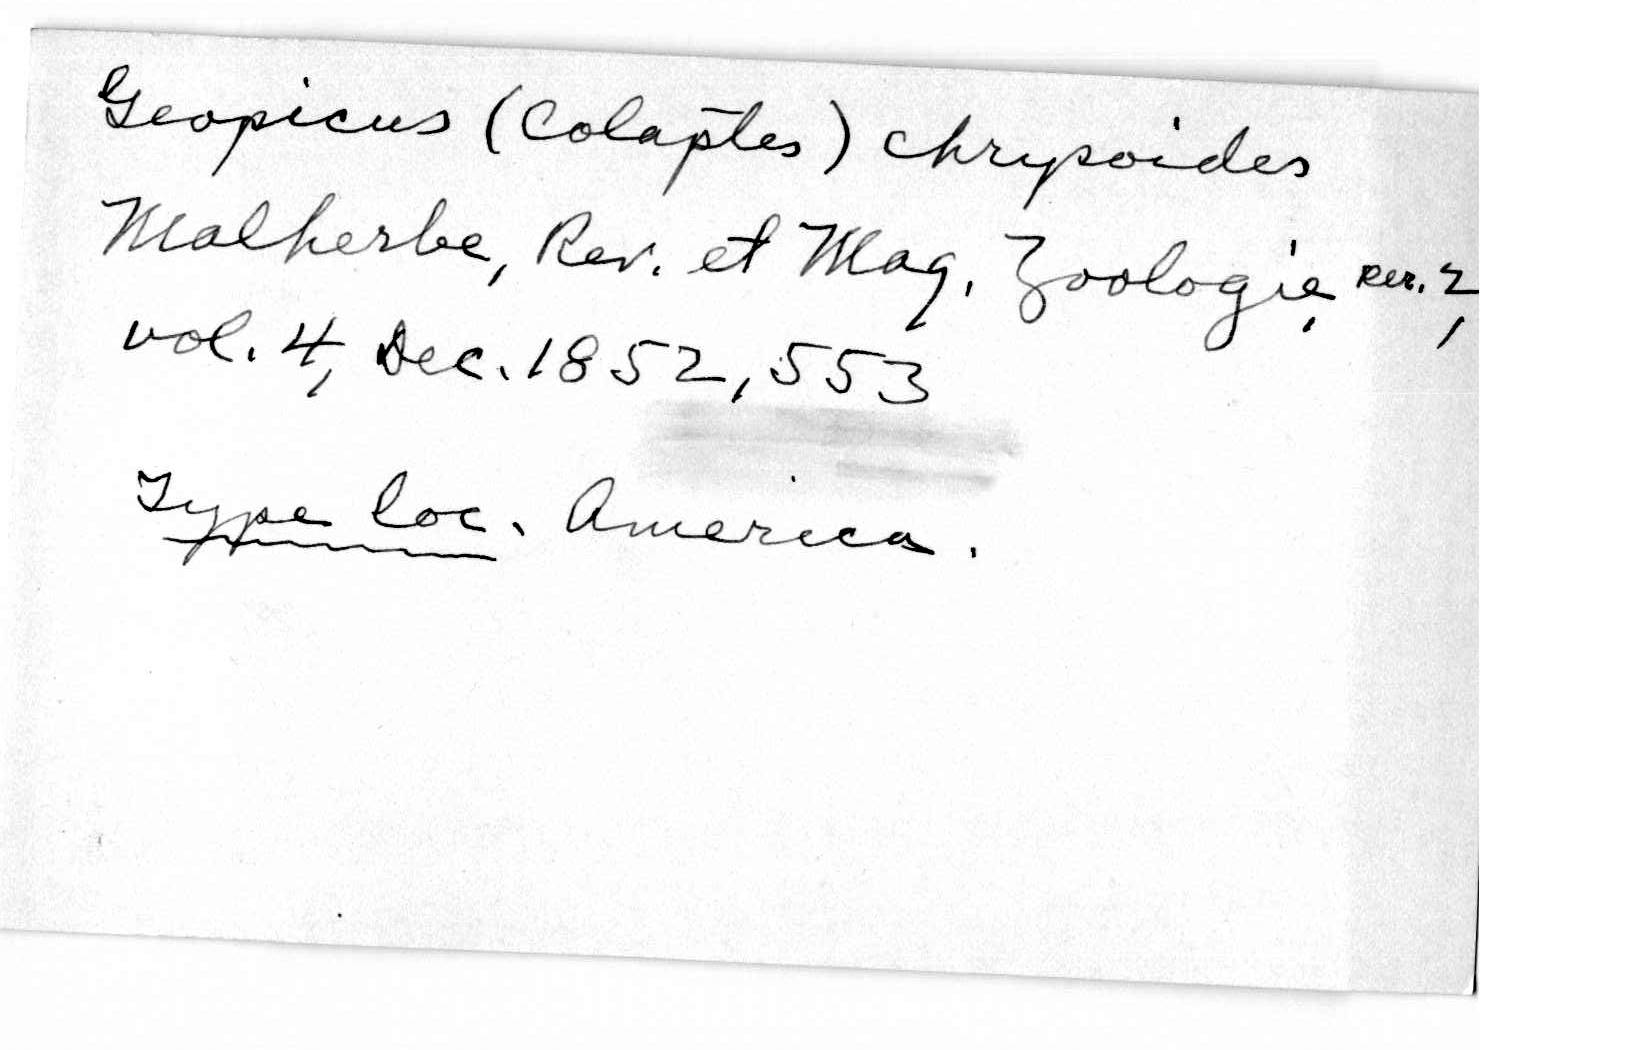 Geopicus (Colaptes) chrysoides
Malherbe, Rev. et Mag. Zoologie, ser. 2,
vol. 4, Dec. 1852, 553
Type loc. America.